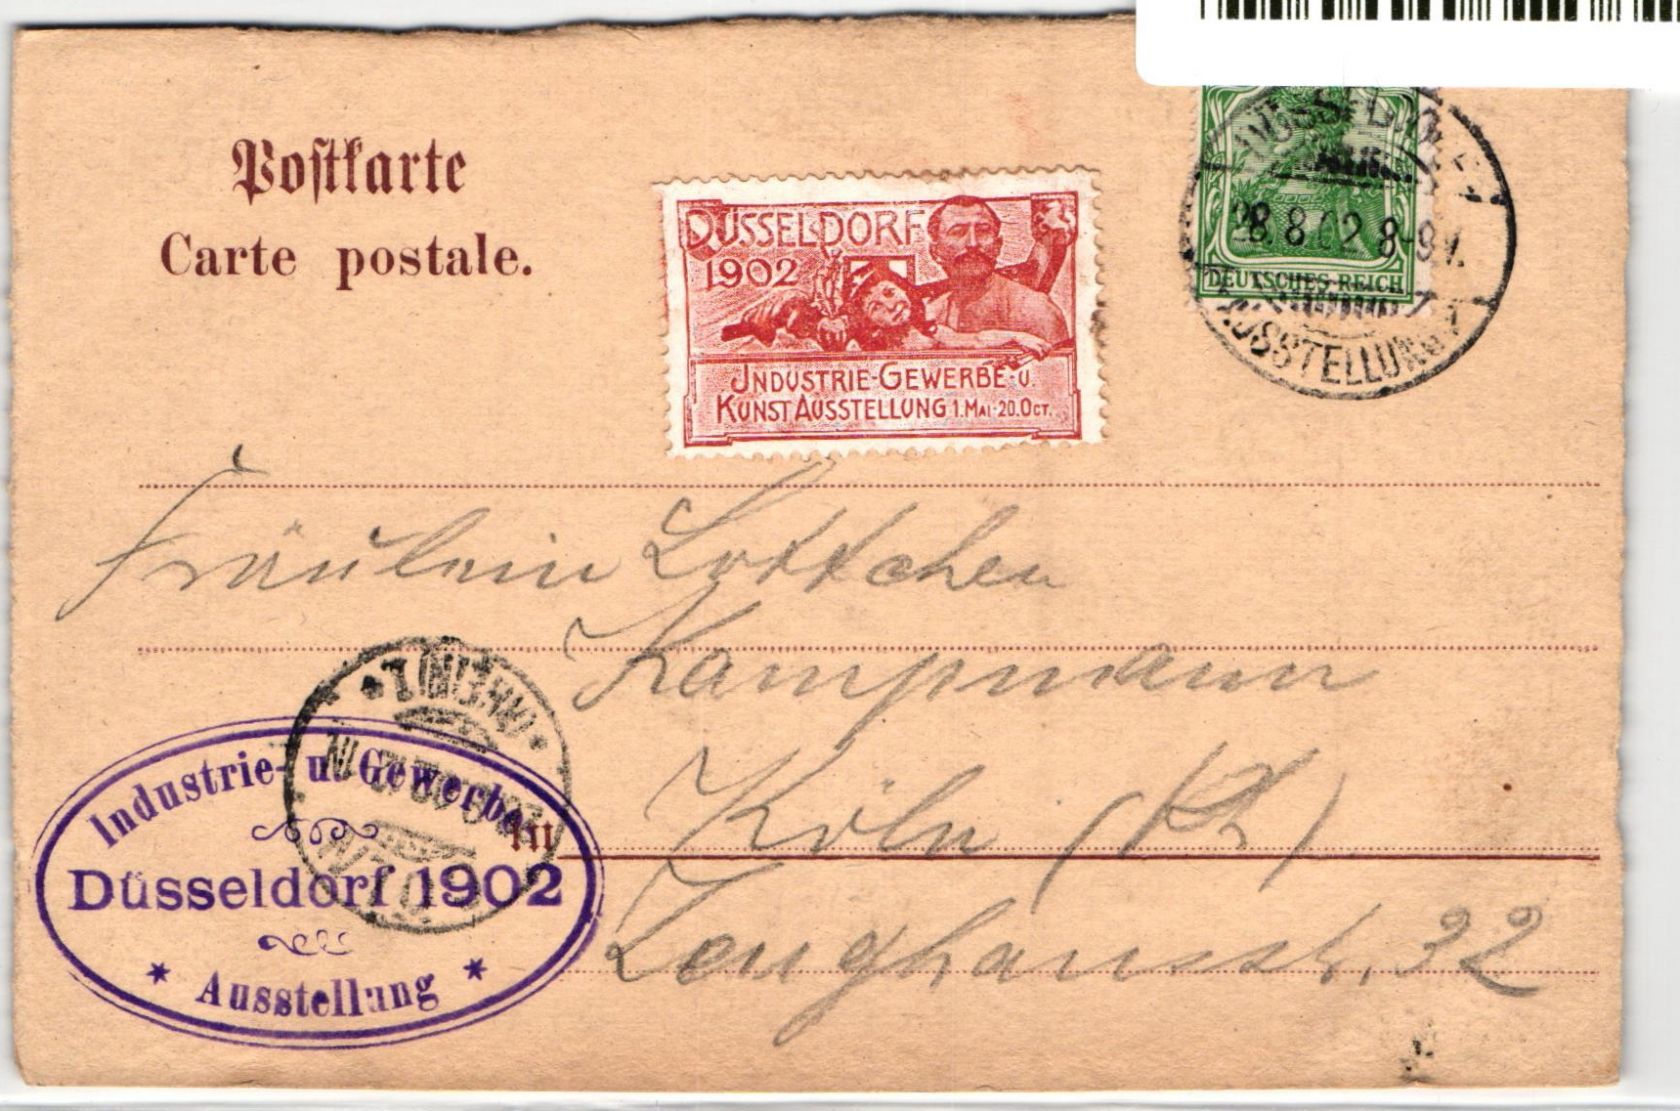 Postkarte
Carte postale.
DÜSSELDORF
1902
INDUSTRIE-GEWERBE-U.
KUNST AUSSTELLUNG 1.MAI-20.OCT.
DÜSSELDORF
28.8.02 8-9V.
AUSSTELLUNG
DEUTSCHES REICH
Fräulein Lottchen
Kampmann
in Köln (Rh)
Zeughausstr. 32
Industrie- u. Gewerbe-
Düsseldorf 1902
* Ausstellung *